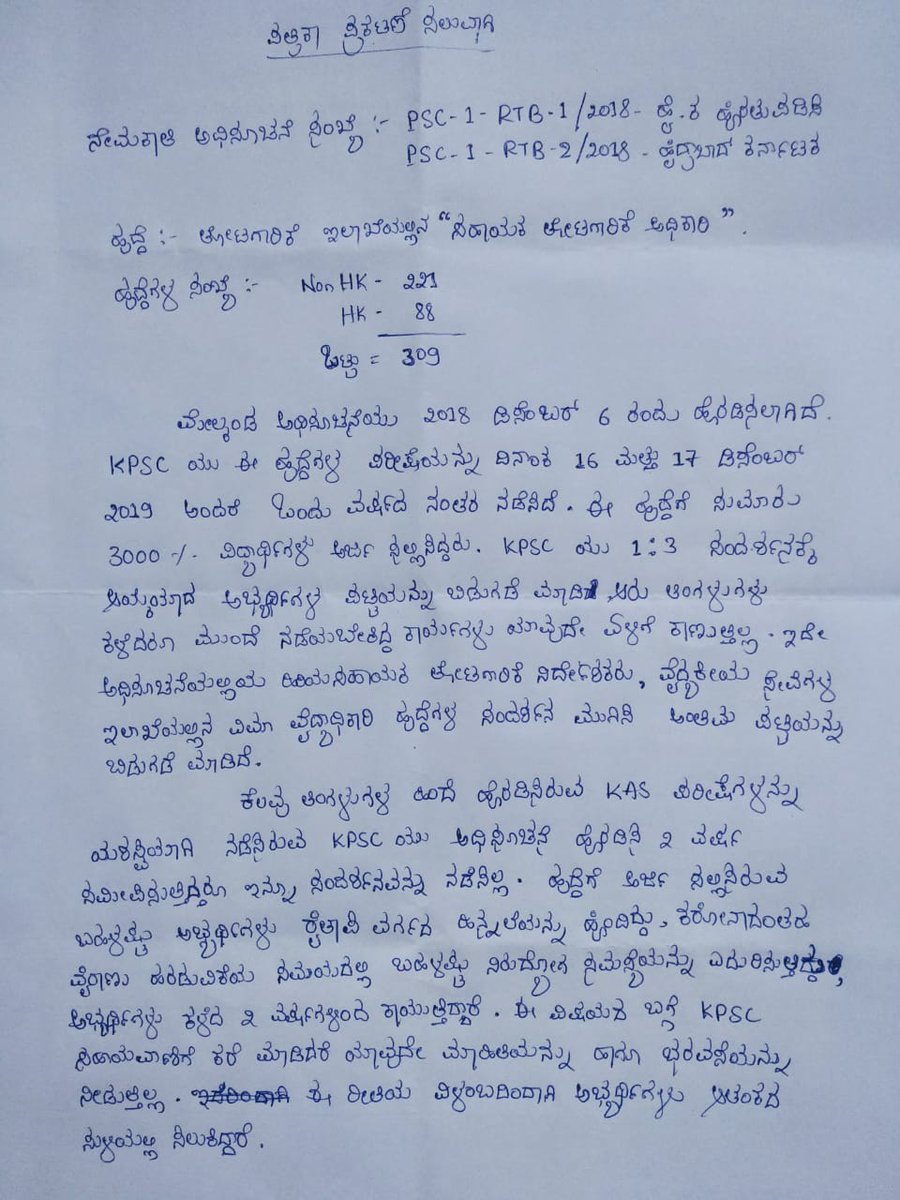 ಪತ್ರಿಕಾ ಪ್ರಕಟಣೆ ಸಲುವಾಗಿ
ನೇಮಕಾತಿ ಅಧಿಸೂಚನೆ ಸಂಖ್ಯೆ :- PSC-1-RTB-1/2018- ಹೈ.ಕ ಹೊರತುಪಡಿಸಿ
PSC-1-RTB-2/2018 - ಹೈದ್ರಾಬಾದ್ ಕರ್ನಾಟಕ
ಹುದ್ದೆ :- ತೋಟಗಾರಿಕೆ ಇಲಾಖೆಯಲ್ಲಿನ "ಸಹಾಯಕ ತೋಟಗಾರಿಕೆ ಅಧಿಕಾರಿ".
ಹುದ್ದೆಗಳ ಸಂಖ್ಯೆ :- Non HK - 221
HK - 88
ಒಟ್ಟು = 309
ಮೇಲ್ಕಂಡ ಅಧಿಸೂಚನೆಯು 2018 ಡಿಸೆಂಬರ್ 6 ರಂದು ಹೊರಡಿಸಲಾಗಿದೆ.
KPSC ಯು ಈ ಹುದ್ದೆಗಳ ಪರೀಕ್ಷೆಯನ್ನು ದಿನಾಂಕ 16 ಮತ್ತು 17 ಡಿಸೆಂಬರ್
2019 ಅಂದರೆ ಒಂದು ವರ್ಷದ ನಂತರ ನಡೆಸಿದೆ. ಈ ಹುದ್ದೆಗೆ ಸುಮಾರು
3000 -/- ವಿದ್ಯಾರ್ಥಿಗಳು ಅರ್ಜಿ ಸಲ್ಲಿಸಿದ್ದರು. KPSC ಯು 1:3 ಸಂದರ್ಶನಕ್ಕೆ
ಆಯ್ಕೆಯಾದ ಅಭ್ಯರ್ಥಿಗಳ ಪಟ್ಟಿಯನ್ನು ಬಿಡುಗಡೆ ಮಾಡಿ, ಆರು ತಿಂಗಳುಗಳು
ಕಳೆದರೂ ಮುಂದೆ ನಡೆಯಬೇಕಿದ್ದ ಕಾರ್ಯಗಳು ಯಾವುದೇ ಏಳಿಗೆ ಕಾಣುತ್ತಿಲ್ಲ. ಇದೇ
ಅಧಿಸೂಚನೆಯಲ್ಲಿಯ ಹಿರಿಯಸಹಾಯಕ ತೋಟಗಾರಿಕೆ ನಿರ್ದೇಶಕರು, ವೈದ್ಯಕೀಯ ಸೇವೆಗಳ
ಇಲಾಖೆಯಲ್ಲಿನ ವಿಮಾ ವೈದ್ಯಾಧಿಕಾರಿ ಹುದ್ದೆಗಳ ಸಂದರ್ಶನ ಮುಗಿಸಿ ಅಂತಿಮ ಪಟ್ಟಿಯನ್ನು
ಬಿಡುಗಡೆ ಮಾಡಿದೆ.
ಕೆಲವು ತಿಂಗಳುಗಳ ಹಿಂದೆ ಹೊರಡಿಸಿರುವ KAS ಪರೀಕ್ಷೆಗಳನ್ನು
ಯಶಸ್ವಿಯಾಗಿ ನಡೆಸಿರುವ KPSC ಯು ಅಧಿಸೂಚನೆ ಹೊರಡಿಸಿ 2 ವರ್ಷ
ಸಮೀಪಿಸುತ್ತಿದ್ದರೂ ಇನ್ನೂ ಸಂದರ್ಶನವನ್ನು ನಡೆಸಿಲ್ಲ. ಹುದ್ದೆಗೆ ಅರ್ಜಿ ಸಲ್ಲಿಸಿರುವ
ಬಹಳಷ್ಟು ಅಭ್ಯರ್ಥಿಗಳು ರೈತಾಪಿ ವರ್ಗದ ಹಿನ್ನಲೆಯನ್ನು ಹೊಂದಿದ್ದು, ಕರೋನಾದಂತಹ
ವೈರಾಣು ಹರಡುವಿಕೆಯ ಸಮಯದಲ್ಲಿ ಬಹಳಷ್ಟು ನಿರುದ್ಯೋಗ ಸಮಸ್ಯೆಯನ್ನು ಎದುರಿಸುತ್ತಿದ್ದು,
ಅಭ್ಯರ್ಥಿಗಳು ಕಳೆದ 2 ವರ್ಷಗಳಿಂದ ಕಾಯುತ್ತಿದ್ದಾರೆ. ಈ ವಿಷಯದ ಬಗ್ಗೆ KPSC
ಸಹಾಯವಾಣಿಗೆ ಕರೆ ಮಾಡಿದರೆ ಯಾವುದೇ ಮಾಹಿತಿಯನ್ನು ಹಾಗೂ ಭರವಸೆಯನ್ನು
ನೀಡುತ್ತಿಲ್ಲ. ಇದರಿಂದಾಗಿ ಈ ರೀತಿಯ ವಿಳಂಬದಿಂದಾಗಿ ಅಭ್ಯರ್ಥಿಗಳು ಆತಂಕದ
ಸುಳಿಯಲ್ಲಿ ಸಿಲುಕಿದ್ದಾರೆ.